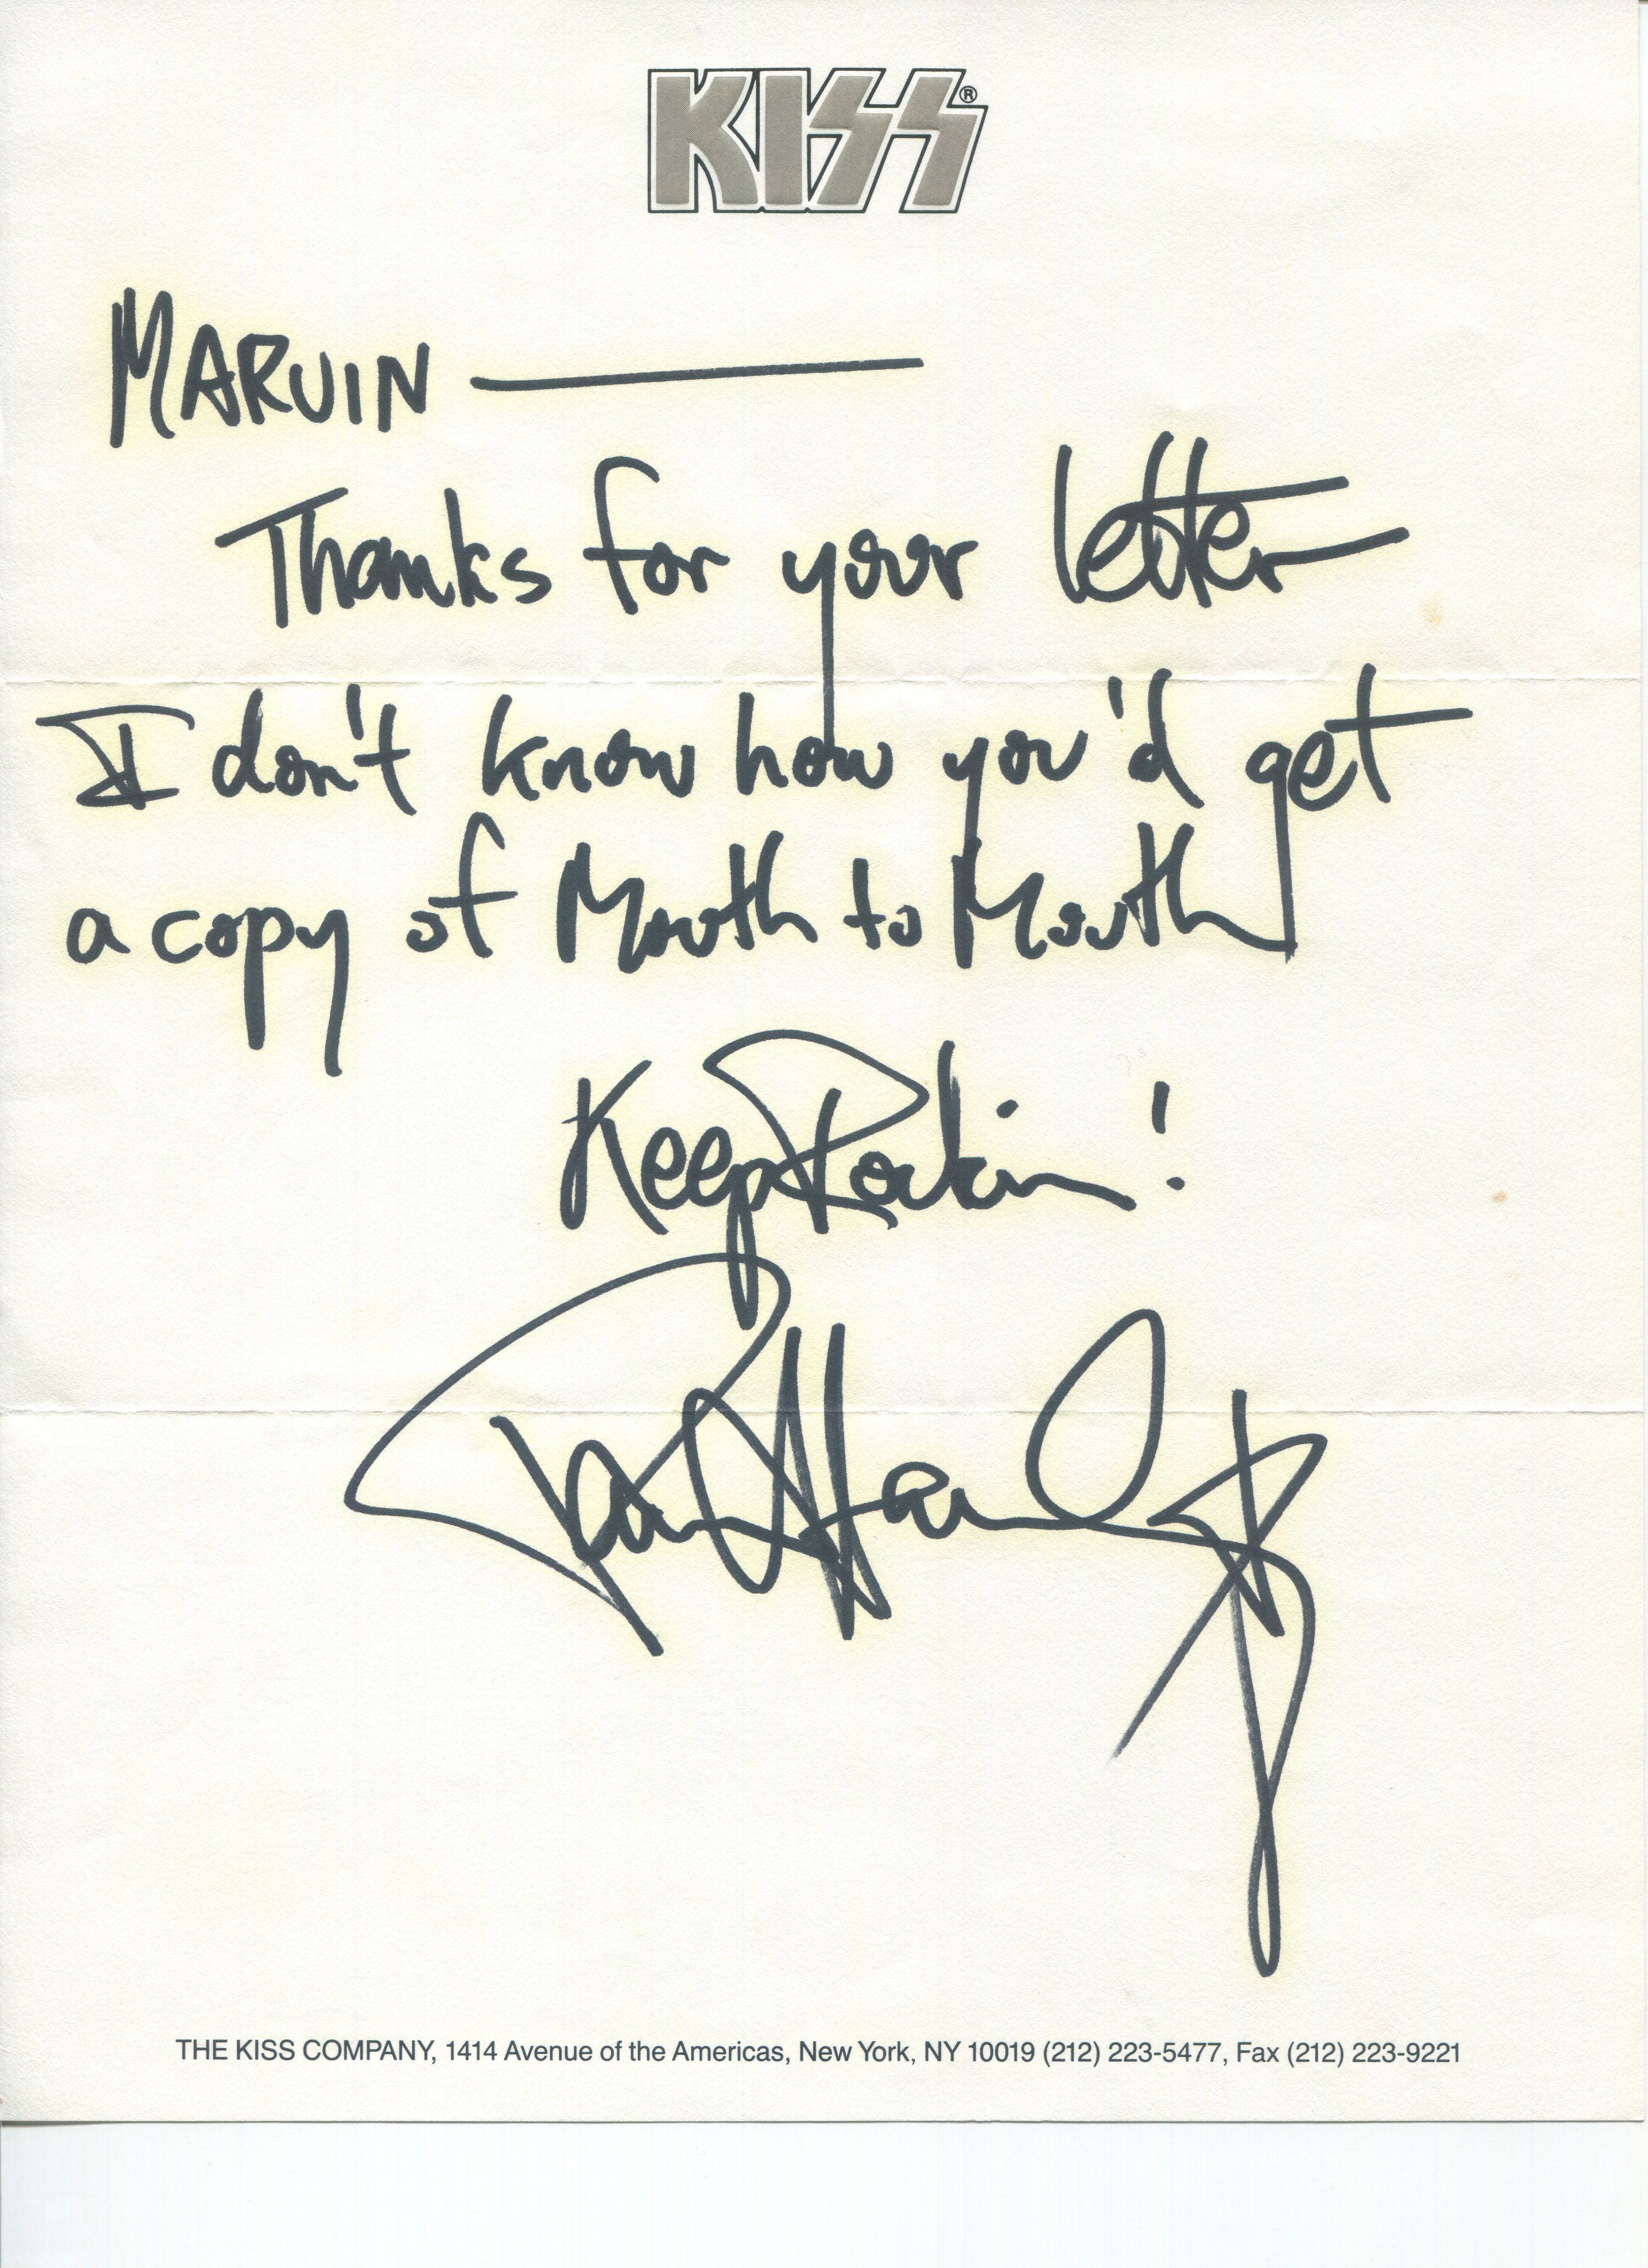 KISS®
MARVIN —
Thanks for your letter
I don't know how you'd get
a copy of Mouth to Mouth
Keep Rockin!
Paul Stanley
THE KISS COMPANY, 1414 Avenue of the Americas, New York, NY 10019 (212) 223-5477, Fax (212) 223-9221